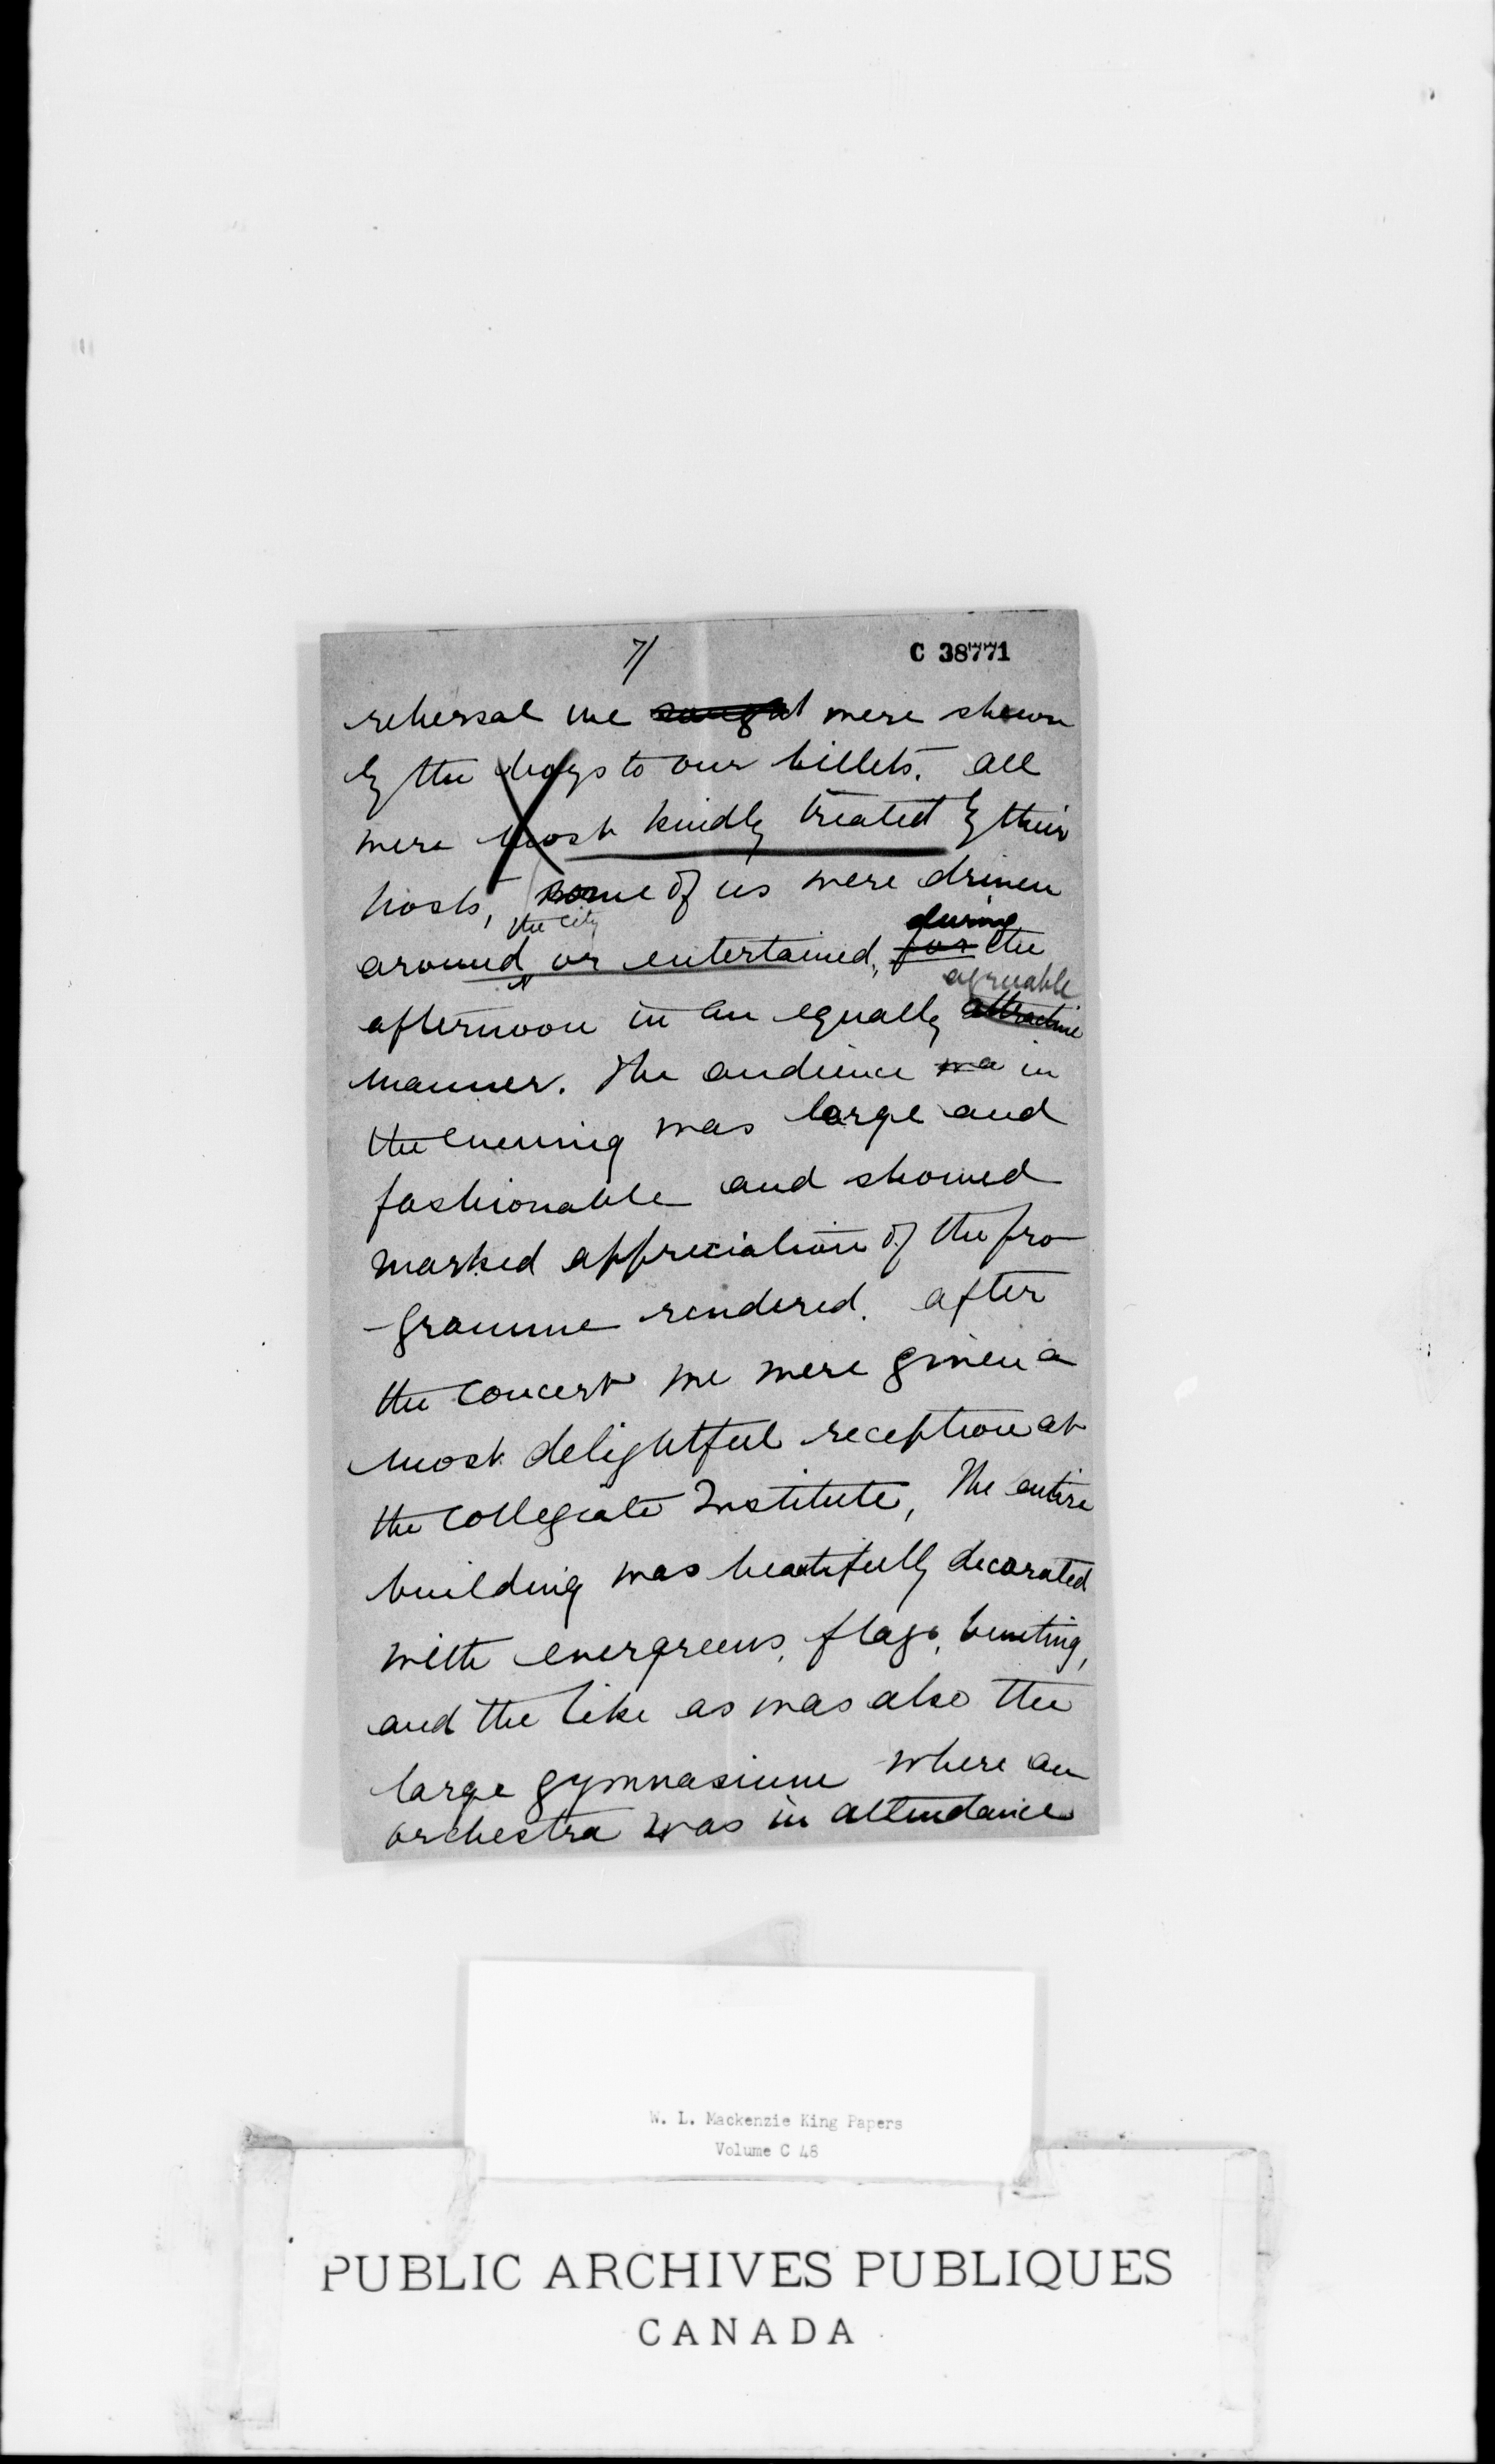 7/
C 38771
rehersal we sought were shewn
by the boys to our billets. All
were most kindly treated by their
hosts, some of us were driven
the city during
around or entertained, for the
agreeable
afternoon in an equally attractive
manner. The audience wa in
the evening was large and
fashionable and showed
marked appreciation of the pro
-gramme rendered. After
the concert we were given a
most delightful reception at
the Collegiate Institute, The entire
building was beautifully decorated
with evergreens, flags, bunting,
and the like as was also the
large gymnasium where an
orchestra was in attendance
W. L. Mackenzie King Papers
Volume C 48
PUBLIC ARCHIVES PUBLIQUES
CANADA